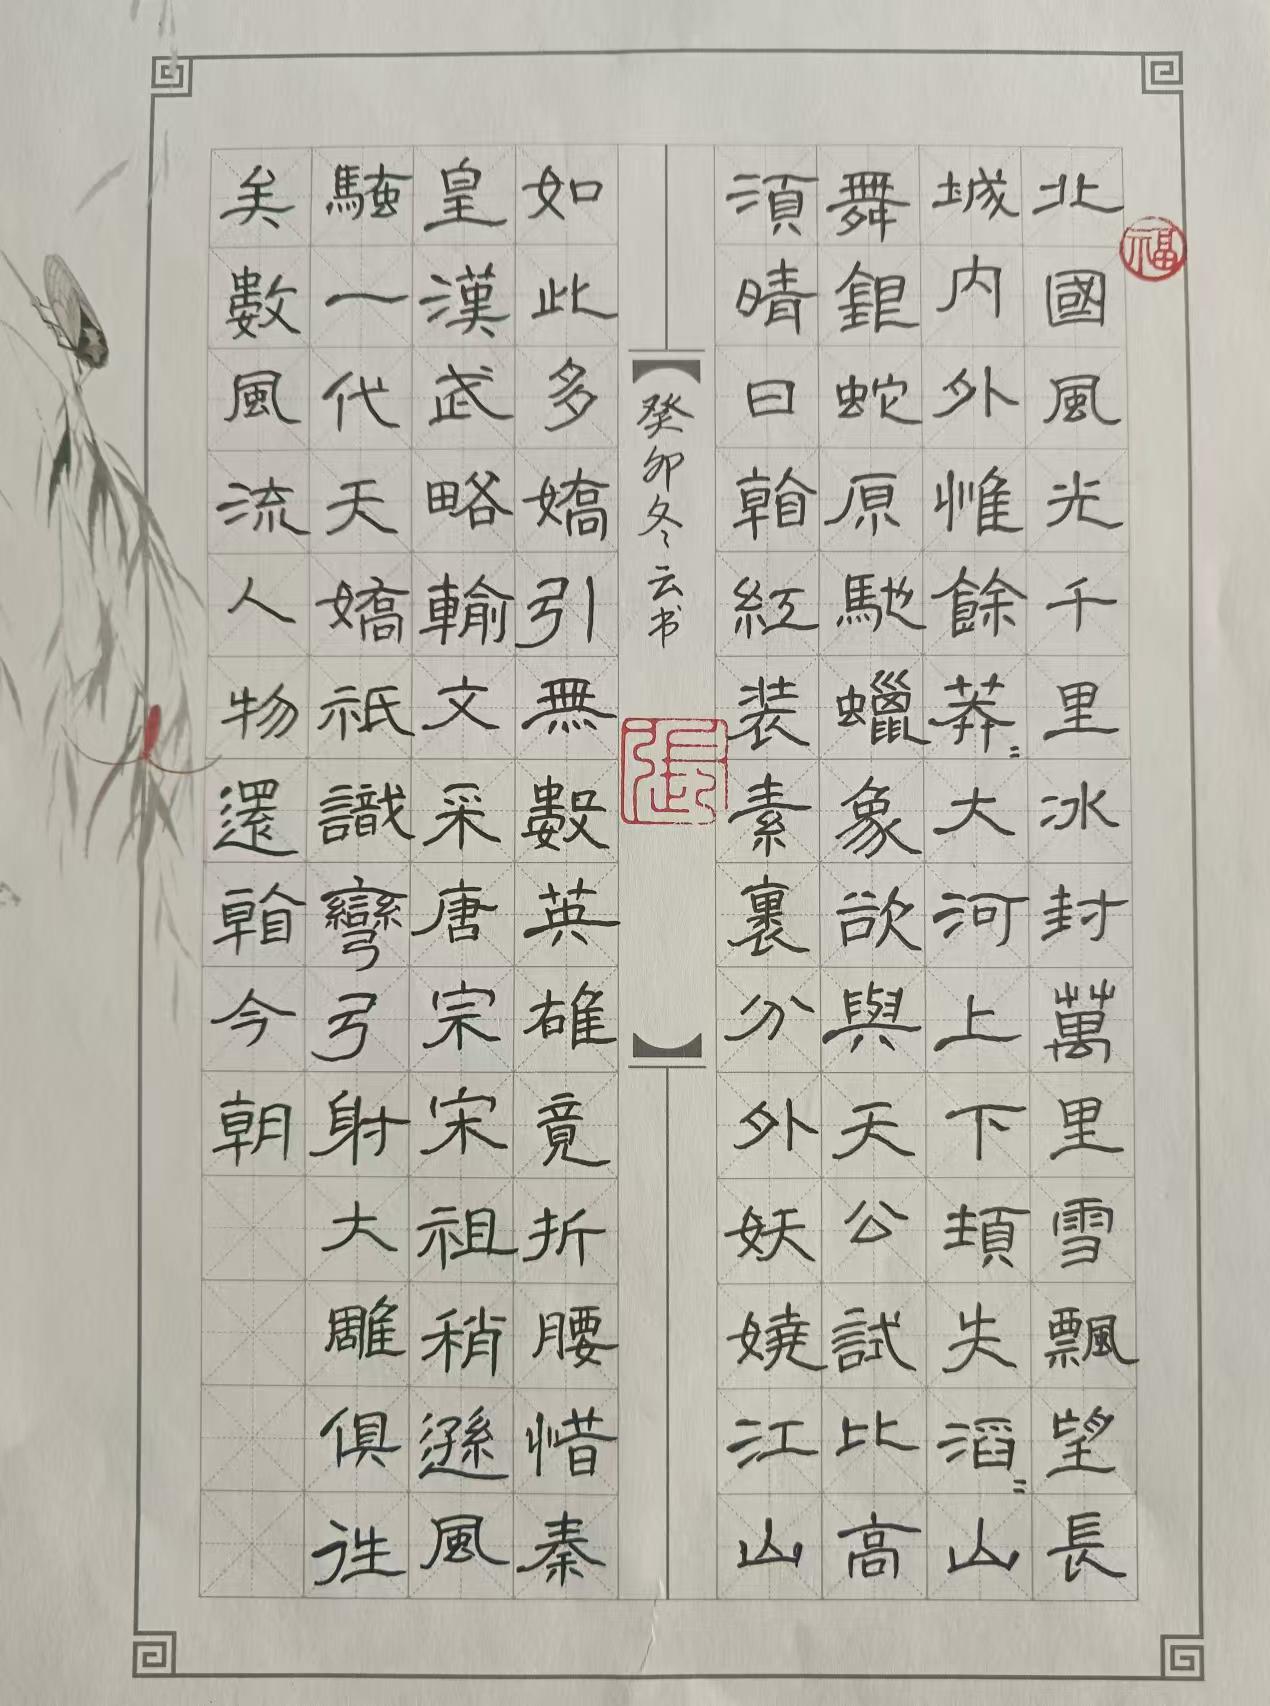 福
北國風光千里冰封萬里雪飄望長
城内外惟餘莽〻大河上下頓失滔〻山
舞銀蛇原馳蠟象欲與天公試比高
須晴日看紅装素裏分外妖嬈江山
如此多嬌引無數英雄竟折腰惜秦
皇漢武略輸文采唐宗宋祖稍遜風
騷一代天嬌祇識彎弓射大雕俱往
矣數風流人物還看今朝
癸卯冬云书
张